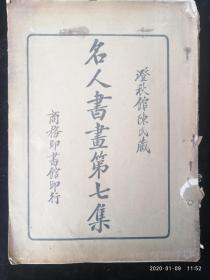 澄秋館陳氏藏
名人書畫第七集
商務印書館印行
2020-01-09 11:52